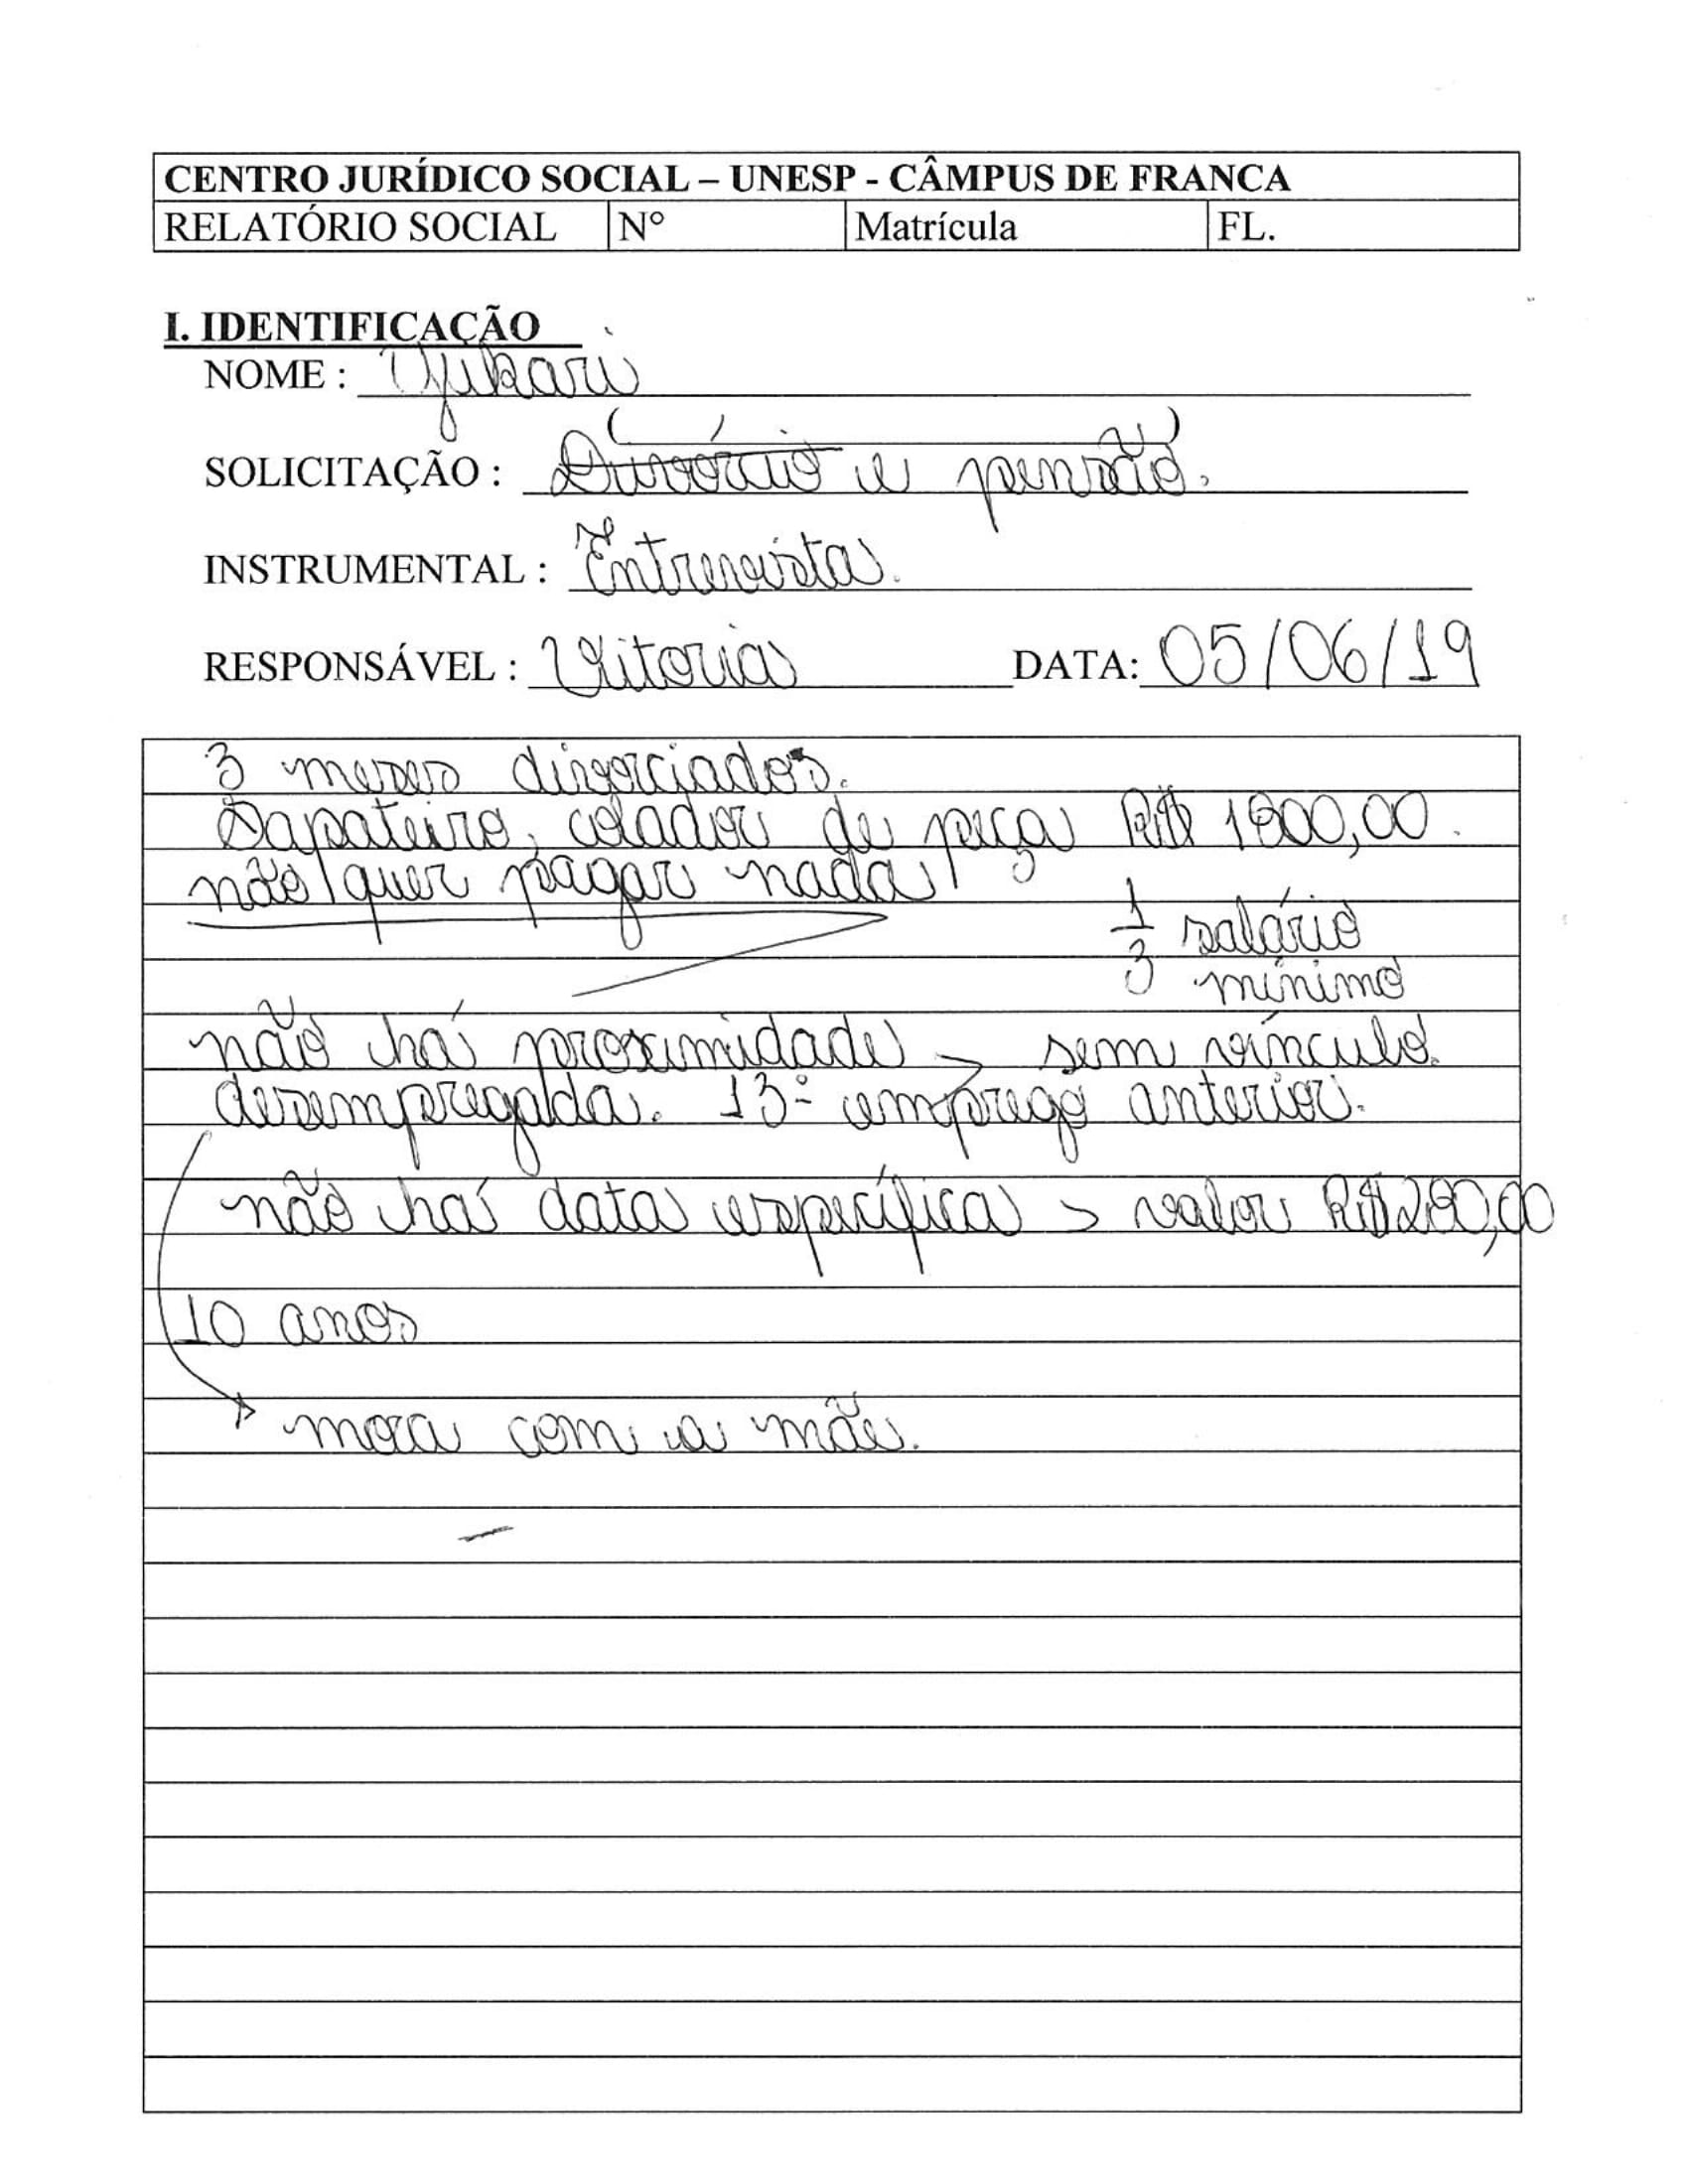 CENTRO JURÍDICO SOCIAL – UNESP - CÂMPUS DE FRANCA
RELATÓRIO SOCIAL Nº Matrícula FL.
I. IDENTIFICAÇÃO
NOME : Yukari
SOLICITAÇÃO : (Divórcio e pensão.)
INSTRUMENTAL : Entrevista.
RESPONSÁVEL : Vitoria DATA: 05/06/19
3 meses divorciados.
Sapateiro, colador de peça R$ 1600,00.
não quer pagar nada
1/3 salário
mínimo
não há proximidade > sem vínculo.
desempregada. 13º emprego anterior.
não há data específica > valor R$ 280,00
10 anos
mora com a mãe.